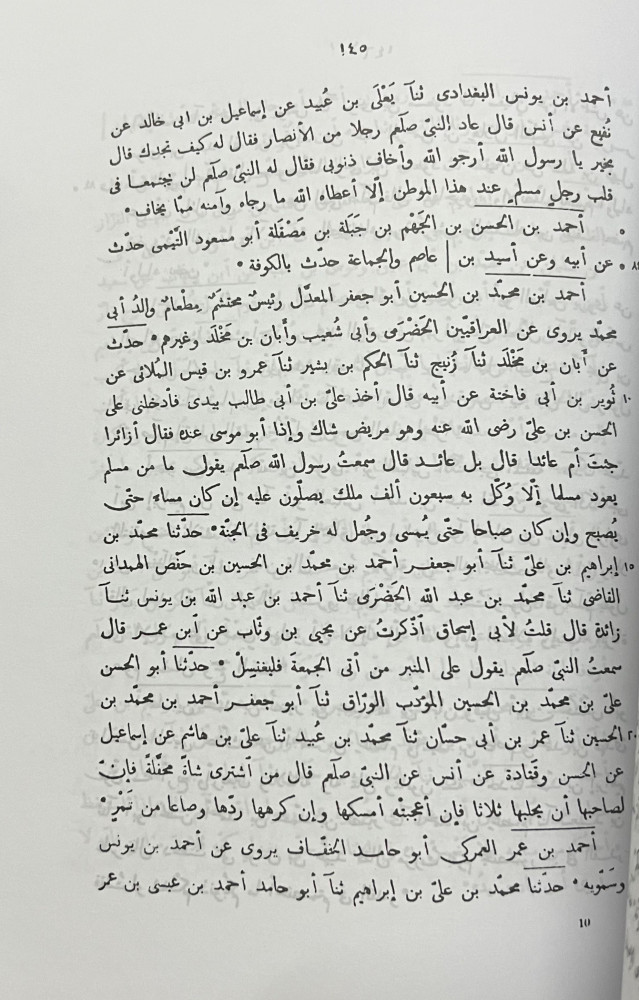 ١٤٥
أحمد بن يونس البغدادى ثنآ يَعْلَى بن عُبيد عن إسماعيل بن ابى خالد عن
نُفيع عن أنس قال عاد النبىّ صلّعم رجلا من الأنصار فقال له كيف تجدك قال
بخير يا رسول الله أرجو الله وأخاف ذنوبى فقال له النبىّ صلّعم لن يجتمعا فى
قلب رجلٍ مسلمٍ عند هذا الموطن إلّا أعطاه الله ما رجاه وآمنه ممّا يخاف •
٥ أحمد بن الحسن بن الجَهْم بن جَبَلة بن مَصْقَلة أبو مسعود التَّيْمى حدّث
عن أبيه وعن أسيد بن | عاصم والجماعة حدّث بالكوفة •
أحمد بن محمّد بن الحسين أبو جعفر المعدّل رئيسٌ محتشمٌ مِطْعامٌ والدُ أبى
محمّد يروى عن العراقيّين الحَضْرَمى وأبى شُعيب وأَبان بن مَخْلَد وغيرهم • حدّث
عن أَبان بن مَخْلَد ثنآ زُنيج ثنآ الحكم بن بشير ثنآ عمرو بن قيس المُلائى عن
١٠ ثُوير بن أبى فاختة عن أبيه قال أخذ علىّ بن أبى طالب بيدى فأدخلنى على
الحسن بن علىّ رضى الله عنه وهو مريض شاك وإذا أبو موسى عنده فقال أزائرا
جئتَ أم عائدا قال بل عائدا قال سمعتُ رسول الله صلّعم يقول ما من مسلم
يعود مسلما إلّا وُكّل به سبعون ألف ملك يصلّون عليه إن كان مساء حتّى
يُصبح وإن كان صباحا حتّى يُمسى وجُعل له خريف فى الجنّة • حدّثنا محمّد بن
١٥ إبراهيم بن علىّ ثنآ أبو جعفر أحمد بن محمّد بن الحسين بن حَفْص الهمدانى
القاضى ثنآ محمّد بن عبد الله الحَضْرَمى ثنآ أحمد بن عبد الله بن يونس ثنآ
زائدة قال قلتُ لأبى إسحاق أذكرتُ عن يحيى بن وثّاب عن ابن عمر قال
سمعتُ النبىّ صلّعم يقول على المنبر من أتى الجمعةَ فليغتسلْ • حدّثنا أبو الحسن
علىّ بن محمّد بن الحسين المؤدّب الورّاق ثنآ أبو جعفر أحمد بن محمّد بن
٢٠ الحسين ثنآ عمر بن أبى حسّان ثنآ محمّد بن عُبيد ثنآ علىّ بن هاشم عن إسماعيل
عن الحسن وقَتادة عن أنس عن النبىّ صلّعم قال من آشترى شاةً محفّلةً فإنّ
لصاحبها أن يحلبها ثلاثا فإن أعجبتْه أمسكها وإن كرهها ردّها وصاعا من تَمْرٍ •
أحمد بن عمر العمركى أبو حامد الخفّاف يروى عن أحمد بن يونس
وسَمّويه • حدّثنا محمّد بن علىّ بن إبراهيم ثنآ أبو حامد أحمد بن عيسى بن عمر
10